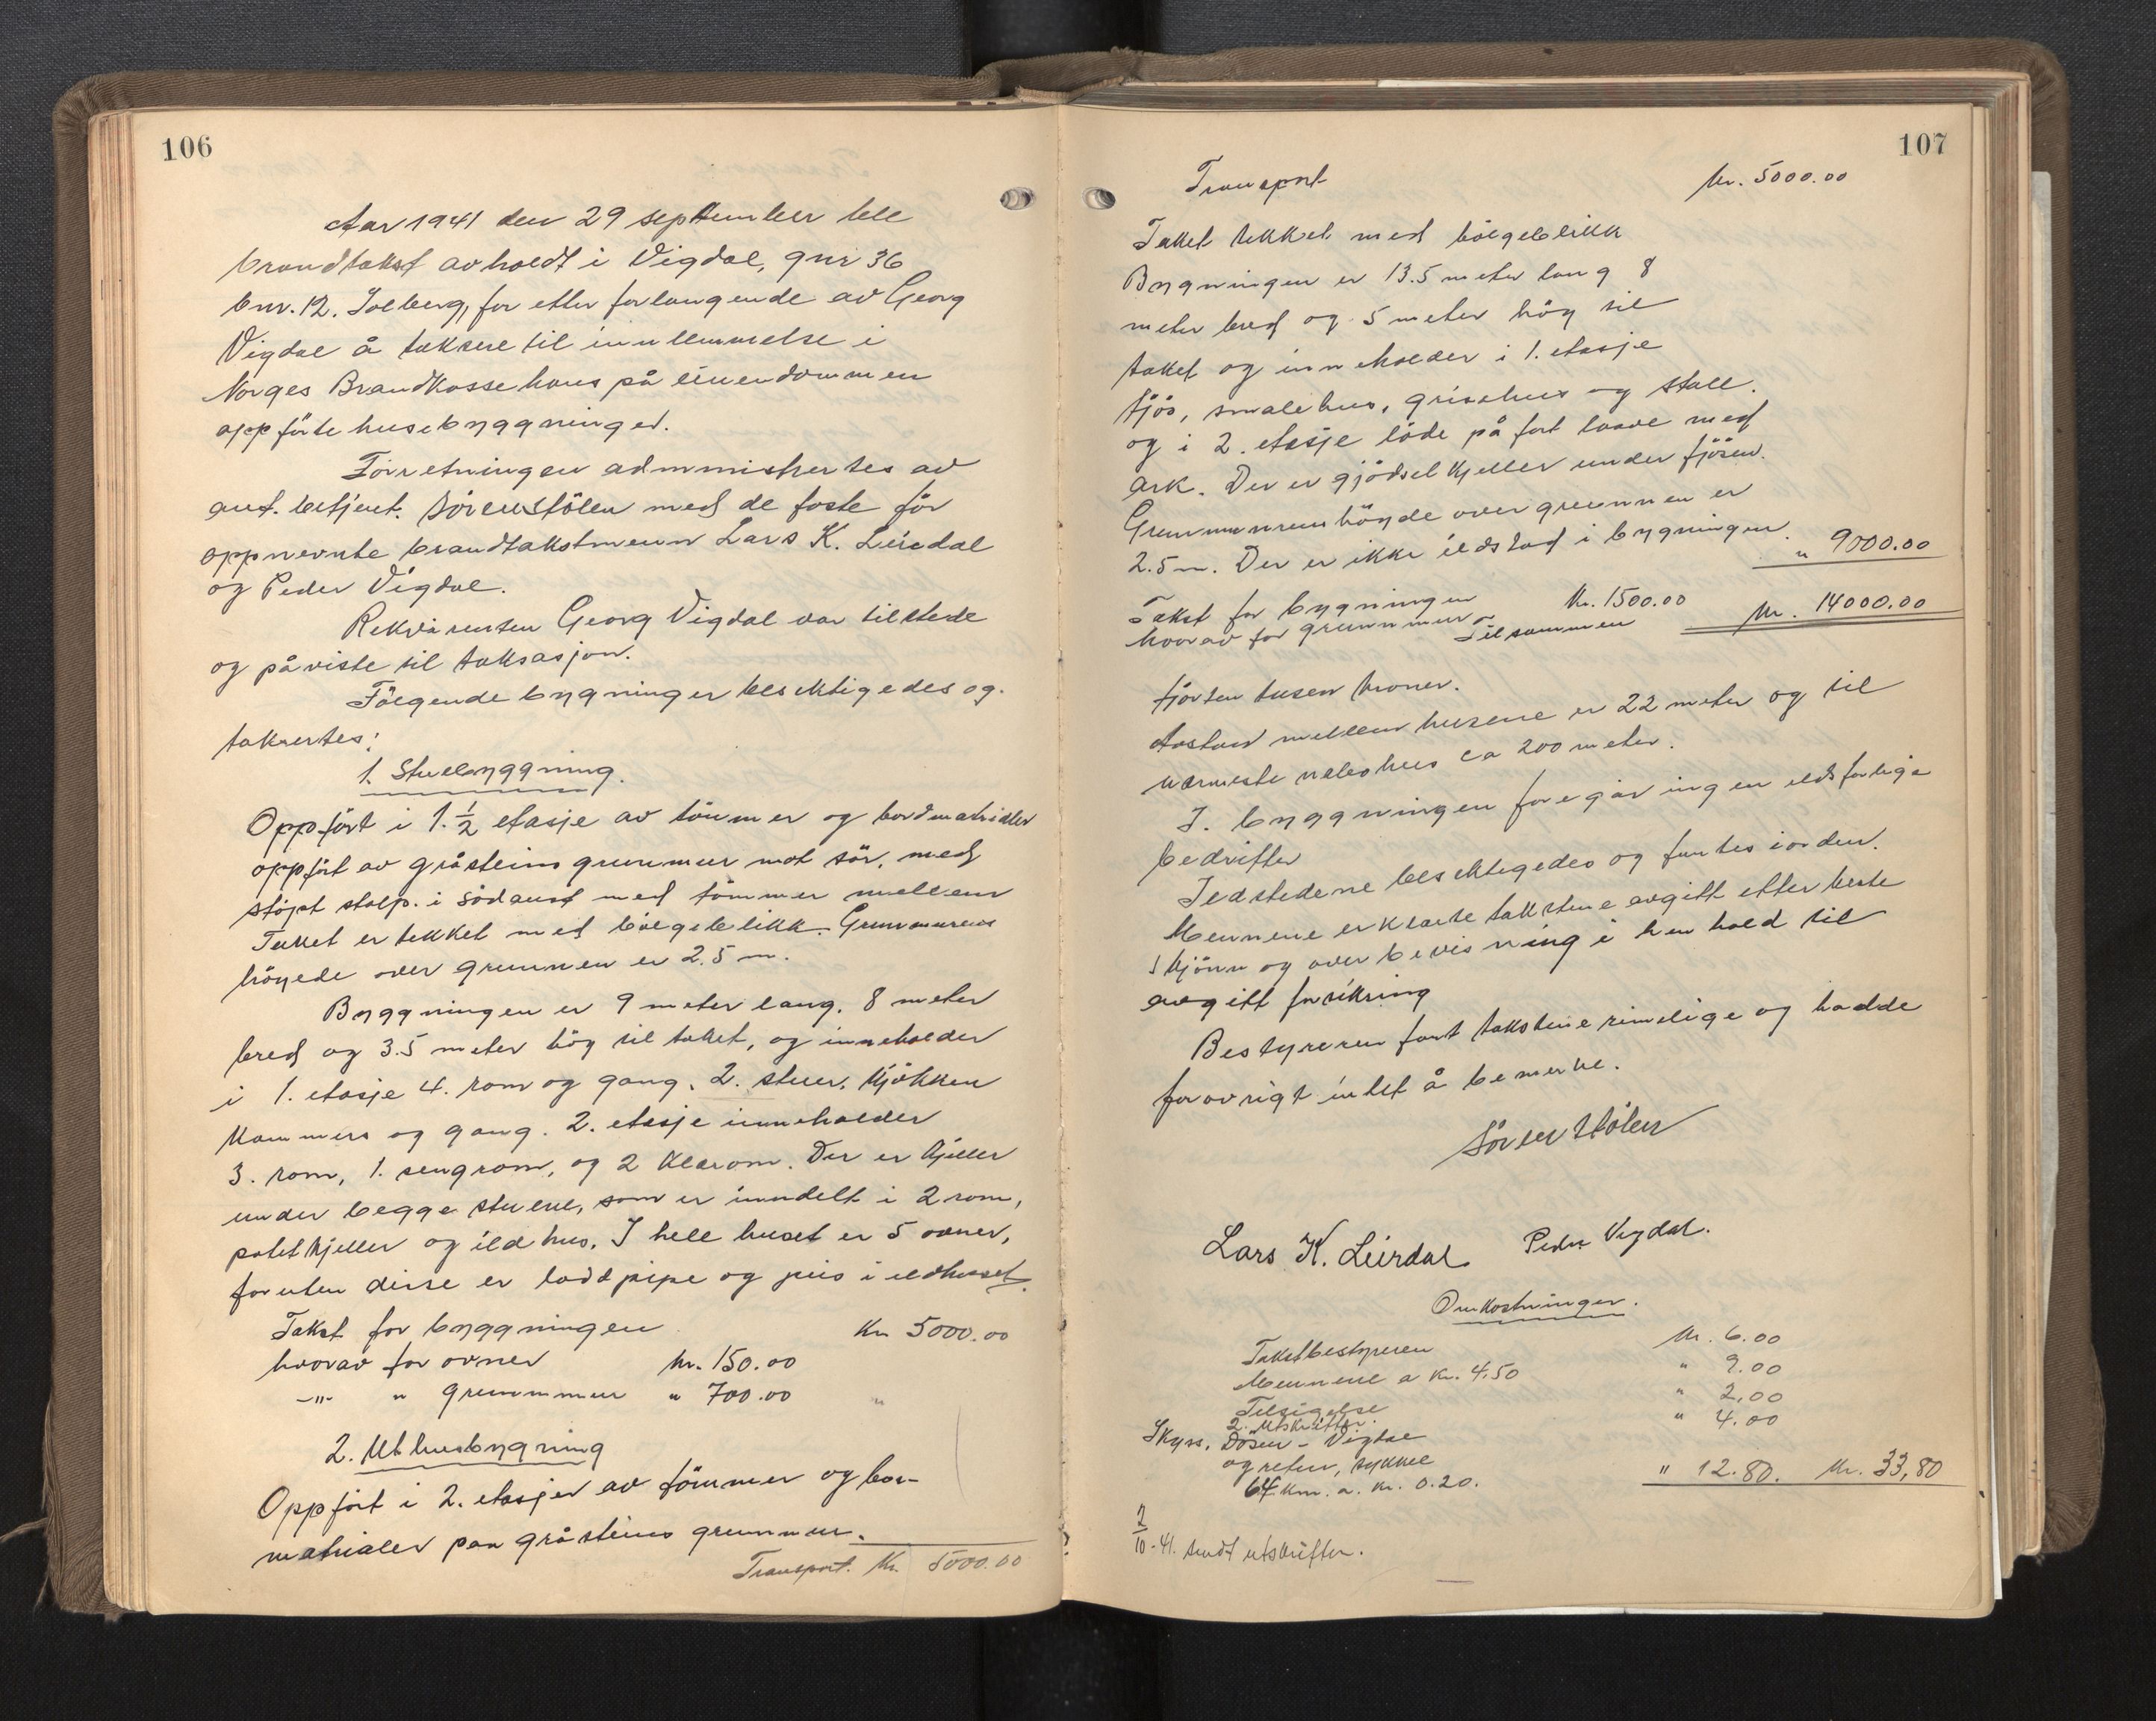 106
Aar 1941 den 29 september ble
brandtakst avholdt i Vigdal, gnr 36
bnr. 12. Solberg, for etter forlangende av Georg
Vigdal å taksere til innlemmelse i
Norges Brandkasse hans på eiendommen
oppförte husebyggninger.
Forretningen administrertes av
aut. betjent. Sørenstölen med de faste før
oppnevnte brandtakstmenn Lars K. Leirdal
og Peder Vigdal.
Rekvirenten Georg Vigdal var tilstede
og påviste til taksasjon.
Fölgende bygninger besiktigedes og.
taksertes:
1. Stuebyggning.
Oppfört i 1. 1/2 etasje av tömmer og bordmatrialer
oppfört av gråsteins grunnmur mot sör, med
støpt stolp. i södaust med tömmer mellem
Taket er tekket med bölgeblikk. Grunnmurens
höyede over grunnen er 2.5 m.
Byggningen er 9 meter lang. 8 meter
bred og 3.5 meter hög til taket, og inneholder
i 1. etasje 4. rom og gang, 2. stuer, kjökken
kammers og gang. 2. etasje inneholder
3. rom, 1. sengrom, og 2 klærom. Der er kjeller
under begge stuene, som er inndelt i 2 rom,
potetkjeller og ildhus. I hele huset er 5 ovner,
foruten disse er lodd pipe og peis i ildhuset.
Takst for byggningen Kr 5000.00
hvorav for ovner kr. 150.00
-"- " grunnmur " 700.00 "
2. Uthusbygning
Oppfört i 2. etasjer av tömmer og bor-
matrialer paa gråsteins grunnmur.
Transport. Kr. 5000.00
107
Transport kr. 5000.00
Taket tekket med bölgeblikk
Bygningen er 13.5 meter lang 8
meter bred og 5 meter hög til
taket og inneholder i 1. etasje
fjös, smalehus, grisehus og stall.
og i 2. etasje löde på fort laave med
ark. Der er gjödselkjeller under fjösen.
Grunnmurens höyde over grunnen er
2.5 m. Der er ikke ildstad i bygningen.
Takst for bygningen " 9000.00
hvorav for grunnmur kr. 1500.00
Tilsammen kr. 14000.00
fjorten tusen kroner.
Avstand mellem husene er 22 meter og til
nærmeste nabohus ca 200 meter.
I. byggningen foregår ingen ildsfarlige
bedrifter
Ildstedene besiktigedes og fantes iorden.
Mennene erklærte takstene avgitt etter beste
skjönn og overbevisning i henhold til
avgitt forsikring
Bestyreren fant takstene rimelige og hadde
forøvrigt intet å bemerke.
Sörenstölen
Lars K. Leirdal Peder Vigdal.
Omkostninger.
Takstbestyreren kr. 6.00
Mennene a kr. 4.50 " 9.00
Tilsigelse " 2.00
2. utskrifter. " 4.00
Skyss. Døsen - Vigdal
og retur, sykkel
64 km. a. kr. 0.20. " 12.80. kr. 33,80
2/10-41. sendt utskrifter.